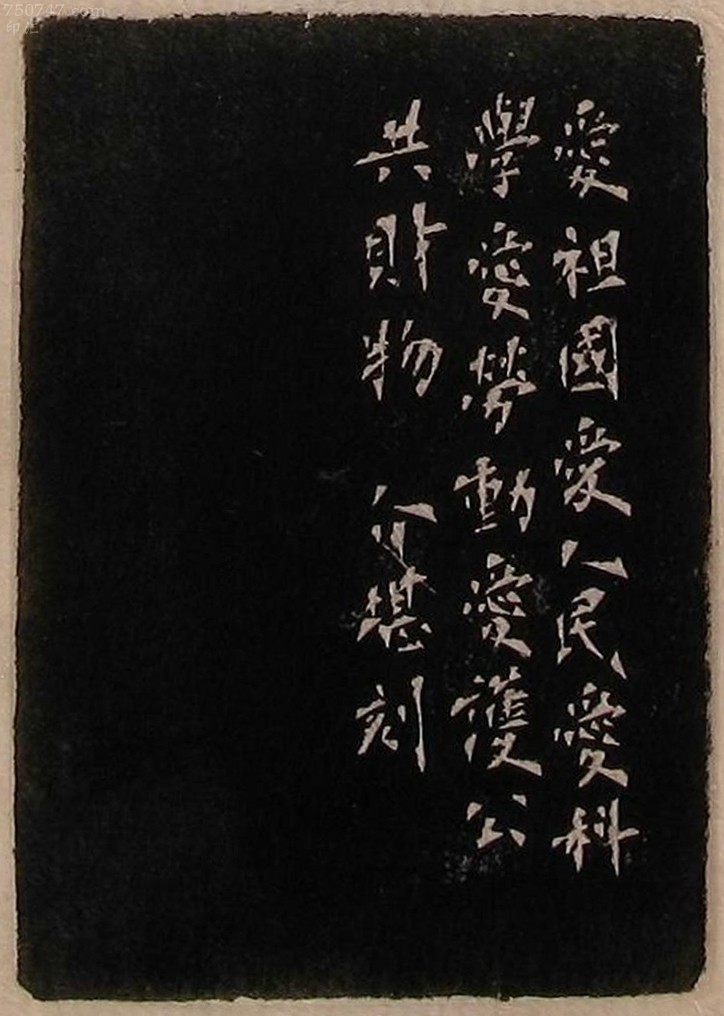 愛祖國愛人民愛科
學愛勞動愛護公
共財物 介堪刻
750747.com